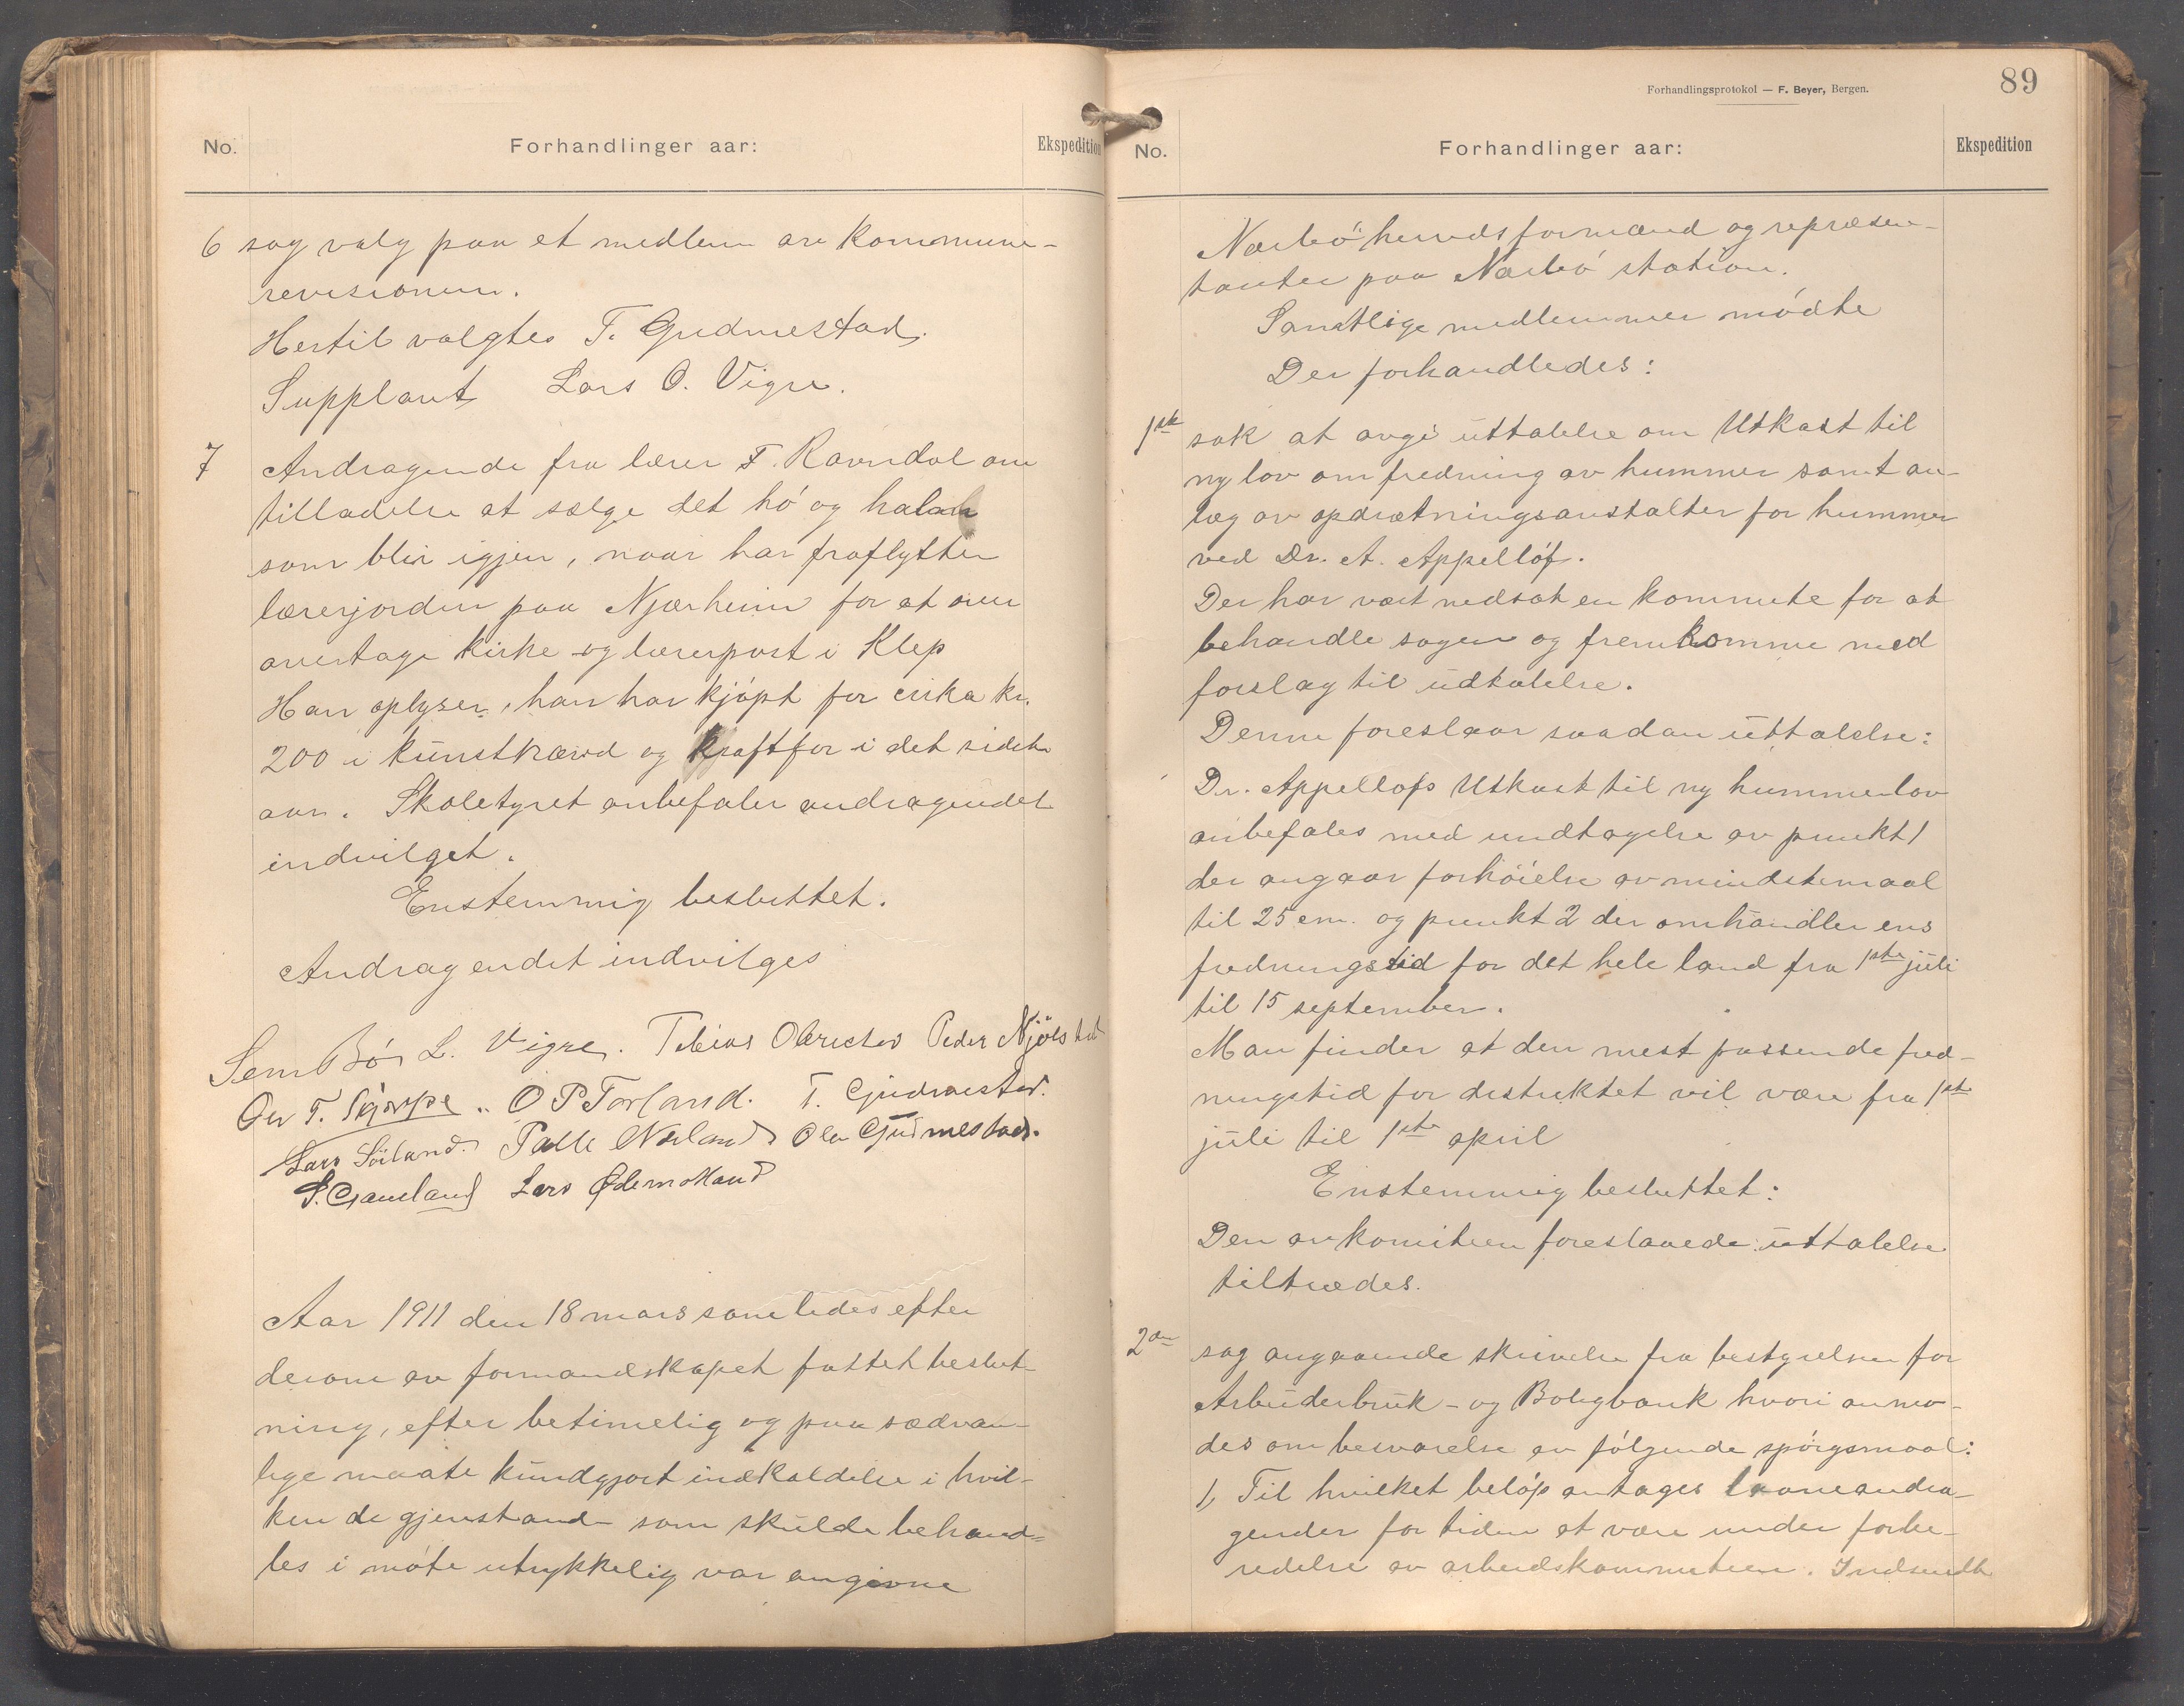 No. Forhandlinger aar: Ekspedition
6 sag valg paa et medlem av kommune-
revisionen.
Hertil valgtes T. Gudmestad.
Supplant Lars O. Vigre.
7 Andragende fra lærer F. Ravndal om
tilladelse at sælge det hö og halm
som blir igjen, naar han fraflytter
lærerjorden paa Njærheim for at over
overtage kirke og lærerpost i Klep
Han oplyser, han har kjöpt for cirka kr.
200 i kunstkævd og kraftfor i det sidste
aar. Skolestyret anbefaler andragendet
indvilget.
Enstemmig besluttet.
Andragendet indvilges
Sem Bö L. Vigre. Tobias Obrestad Peder Njölstad
Ole T. Skjærpe. O P Torland. T. Gudmestad.
Lars Söiland. Palle Nærland Ola Gudmestad.
S. Graueland Lars Ødemotland
Aar 1911 den 18 mars samledes efter
derom av formandskapet fattet beslut-
ning, efter betimelig og paa sædvan-
lige maate kundgjort indkaldelse i hvil-
ken de gjenstande som skulde behand-
les i möte utrykkelig var angivne
Forhandlingsprotokol — F. Beyer, Bergen. 89
No. Forhandlinger aar: Ekspedition
Nærbö herredsformænd og repræsen-
tanter paa Nærbö station.
Samtlige medlemmer mödte
Der forhandledes:
1ste sak at avgi uttalelse om Utkast til
ny lov om fredning av hummer samt an-
læg av opdrætningsanstalter for hummer
ved Dr. A. Appellöf.
Der har vært nedsat en kommite for at
behandle sagen og fremkomme med
forslag til udtalelse.
Denne foreslaar saadan uttalelse:
Dr. Appellofs Utkast til ny hummerlov
anbefales med undtagelse av punkt 1
der angaar forhöielse av mindstemaal
til 25 cm. og punkt 2 der omhandler ens
fredningstid for det hele land fra 1ste juli
til 15 september.
Man finder at den mest passende fred-
ningstid for distriktet vil være fra 1ste
juli til 1ste april
Enstemmig besluttet:
Den av komiteen foreslaaede uttalelse
tiltrædes.
2den sag angaaende skrivelse fra bestyrelsen for
Arbeiderbruk- og Boligbank hvori anmo-
des om besvarelse av fölgende spörgsmaal:
1, Til hvilket belöp antages laaneandra-
gender for tiden at være under forbe-
redelse av arbeidskommiteen. Indsendte